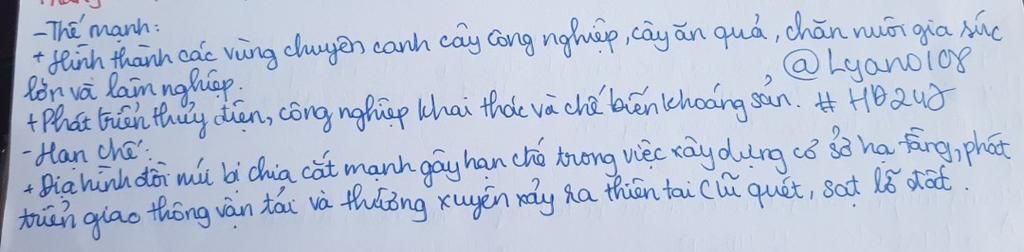 - Thế mạnh:
+ Hình thành các vùng chuyên canh cây công nghiệp, cây ăn quả, chăn nuôi gia súc
lớn và lâm nghiệp.
@Lyano108
+ Phát triển thủy điện, công nghiệp khai thác và chế biến khoáng sản. # HĐ247
- Hạn chế:
+ Địa hình đồi núi bị chia cắt mạnh gây hạn chế trong việc xây dựng cơ sở hạ tầng, phát
triển giao thông vận tải và thường xuyên xảy ra thiên tai (lũ quét, sạt lở đất.